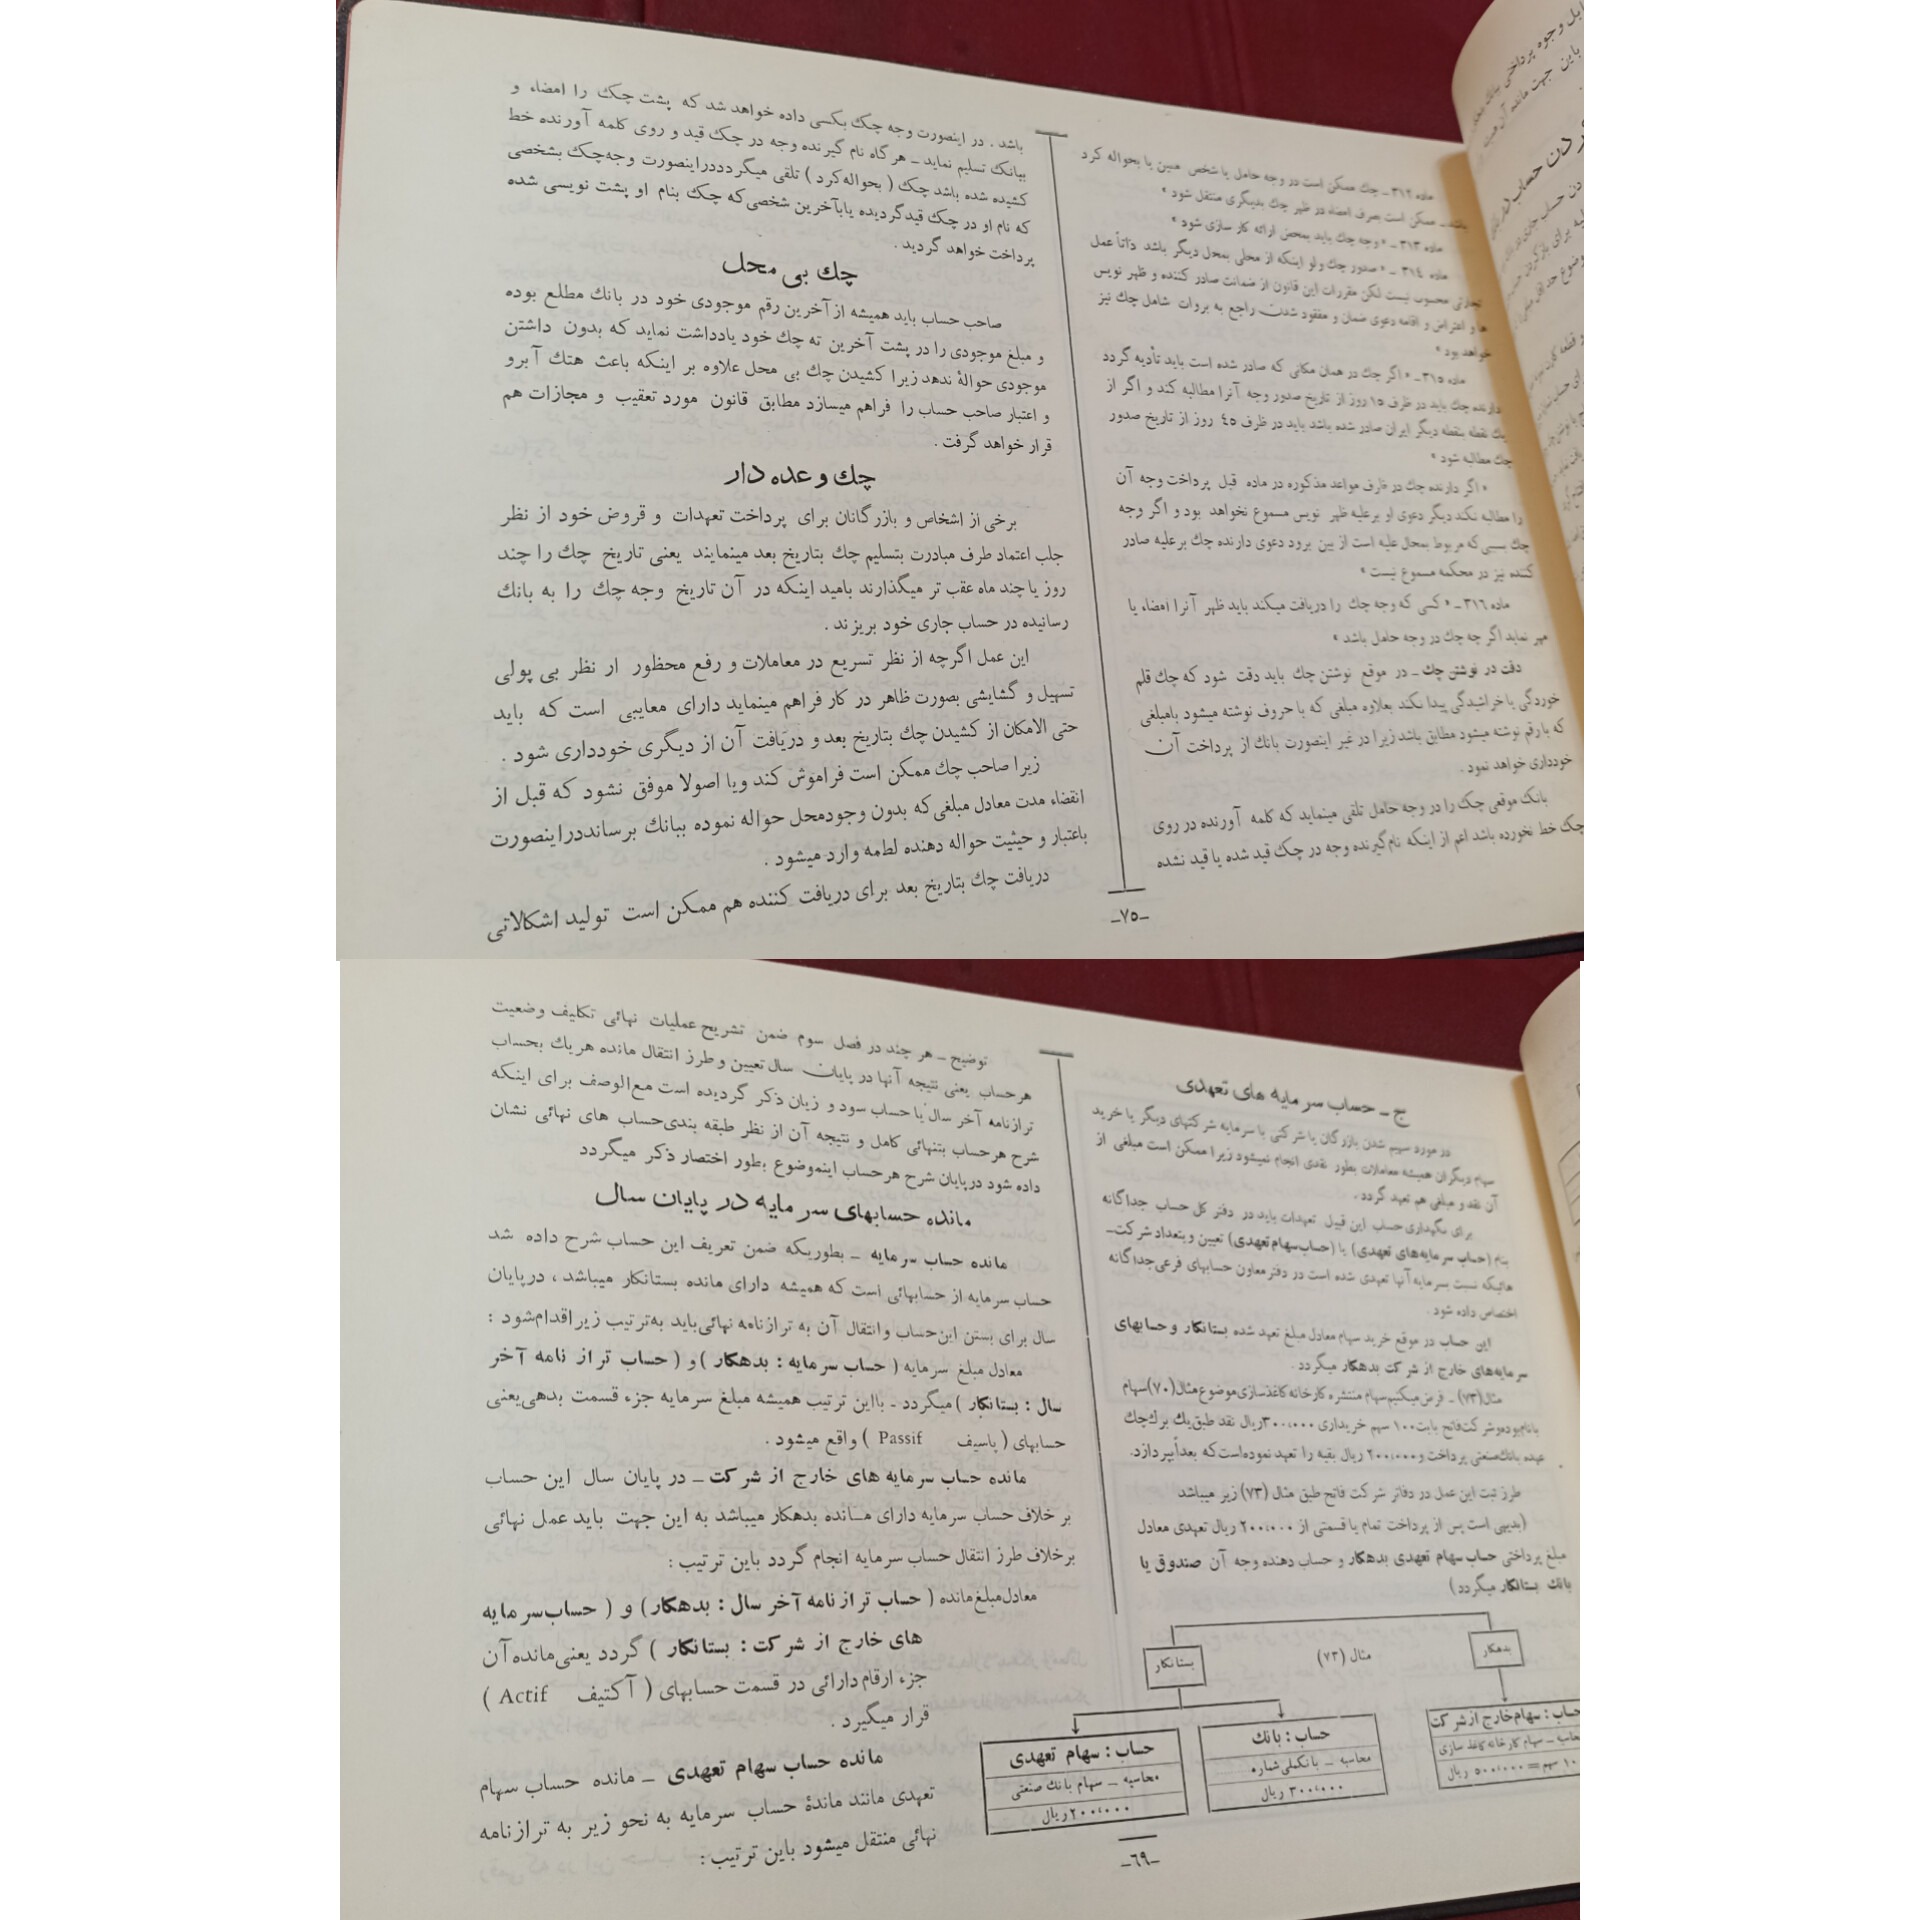 ماده ۳۱۲ ـ چك ممکن است در وجه حامل یا شخص معین یا بحواله کرد
باشد ـ ممکن است بصرف امضاء در ظهر چك بدیگری منتقل شود »
ماده ۳۱۳ ـ « وجه چك باید بمحض ارائه کار سازی شود »
ماده ۳۱٤ ـ « صدور چك ولو اینکه از محلی بمحل دیگر باشد ذاتاً عمل
تجارتی محسوب نیست لکن مقررات این قانون از ضمانت صادر کننده و ظهر نویس
ها و اعتراض و اقامه دعوی ضمان و مفقود شدن راجع به بروات شامل چك نیز
خواهد بود »
ماده ۳۱۵ ـ « اگر چك در همان مکانی که صادر شده است باید تأدیه گردد
دارنده چك باید در ظرف ۱۵ روز از تاریخ صدور وجه آنرا مطالبه کند و اگر از
یك نقطه بنقطه دیگر ایران صادر شده باشد باید در ظرف ٤۵ روز از تاریخ صدور
چك مطالبه شود »
« اگر دارنده چك در ظرف مواعد مذکوره در ماده قبل پرداخت وجه آن
را مطالبه نکند دیگر دعوی او برعلیه ظهر نویس مسموع نخواهد بود و اگر وجه
چك بسببی که مربوط بمحال علیه است از بین برود دعوی دارنده چك بر علیه صادر
کننده نیز در محکمه مسموع نیست »
ماده ۳۱٦ ـ « کسی که وجه چك را دریافت میکند باید ظهر آنرا امضاء یا
مهر نماید اگر چه چك در وجه حامل باشد »
دقت در نوشتن چك ـ در موقع نوشتن چك باید دقت شود که چك قلم
خوردگی یا خراشیدگی پیدا نکند بعلاوه مبلغی که با حروف نوشته میشود بامبلغی
که بارقم نوشته میشود مطابق باشد زیرا در غیر اینصورت بانك از پرداخت آن
خودداری خواهد نمود .
بانك موقعی چك را در وجه حامل تلقی مینماید که کلمه آورنده در روی
چك خط نخورده باشد اعم از اینکه نام گیرنده وجه در چك قید شده یا قید نشده
باشد . در اینصورت وجه چك بکسی داده خواهد شد که پشت چك را امضاء و
ببانك تسلیم نماید ـ هر گاه نام گیرنده وجه در چك قید و روی کلمه آورنده خط
کشیده شده باشد چك ( بحواله کرد ) تلقی میگردددراینصورت وجه‌چك بشخصی
که نام او در چك قیدگردیده یابآخرین شخصی‌که چك بنام او پشت نویسی شده
پرداخت خواهد گردید .
چك بی محل
صاحب حساب باید همیشه از آخرین رقم موجودی خود در بانك مطلع بوده
و مبلغ موجودی را در پشت آخرین ته چك خود یادداشت نماید که بدون داشتن
موجودی حوالهٔ ندهد زیرا کشیدن چك بی محل علاوه بر اینکه باعث هتك آبرو
و اعتبار صاحب حساب را فراهم میسازد مطابق قانون مورد تعقیب و مجازات هم
قرار خواهد گرفت .
چك وعده دار
برخی از اشخاص و بازرگانان برای پرداخت تعهدات و قروض خود از نظر
جلب اعتماد طرف مبادرت بتسلیم چك بتاریخ بعد مینمایند یعنی تاریخ چك را چند
روز یا چند ماه عقب تر میگذارند بامید اینکه در آن تاریخ وجه چك را به بانك
رسانیده در حساب جاری خود بریزند .
این عمل اگرچه از نظر تسریع در معاملات و رفع محظور از نظر بی پولی
تسهیل و گشایشی بصورت ظاهر در کار فراهم مینماید دارای معایبی است که باید
حتی الامکان از کشیدن چك بتاریخ بعد و دریافت آن از دیگری خودداری شود .
زیرا صاحب چك ممکن است فراموش کند ویا اصولا موفق نشود که قبل از
انقضاء مدت معادل مبلغی‌که بدون وجودمحل حواله نموده ببانك برسانددراینصورت
باعتبار و حیثیت حواله دهنده لطمه وارد میشود .
دریافت چك بتاریخ بعد برای دریافت کننده هم ممکن است تولید اشکالاتی
ـ۷۵ـ
ج ـ حساب سرمایه های تعهدی
در مورد سهیم شدن بازرگان یا شرکتی با سرمایه شرکتهای دیگر یا خرید
سهام دیگران همیشه معاملات بطور نقدی انجام نمیشود زیرا ممکن است مبلغی از
آن نقد و مبلغی هم تعهد گردد .
برای نگهداری حساب این قبیل تعهدات باید در دفتر کل حساب جداگانه
بنام (حساب سرمایه‌های تعهدی) یا (حساب‌سهام‌تعهدی) تعیین وبتعداد شرکت‌ـ
هائیکه نسبت بسرمایه آنها تعهدی شده است در دفتر معاون حسابهای فرعی‌جداگانه
اختصاص داده شود .
این حساب در موقع خرید سهام معادل مبلغ تعهد شده بستانکار و حسابهای
سرمایه‌های خارج از شرکت بدهکار میگردد .
مثال(۷۳) ـ فرض‌میکنیم‌سهام منتشره کارخانه‌کاغذسازی‌موضوع‌مثال(۷۰)سهام
بانام‌بوده‌وشرکت‌فاتح بابت۱۰۰ سهم خریداری ۳۰۰،۰۰۰ریال نقد طبق‌یك برگ‌چك
عهده بانك‌صنعتی پرداخت و۲۰۰،۰۰۰ ریال بقیه را تعهد نموده‌است‌که بعداًبپردازد.
طرز ثبت این عمل در دفاتر شرکت فاتح طبق مثال (۷۳) زیر میباشد
(بدیهی است پس از پرداخت تمام یا قسمتی از ۲۰۰،۰۰۰ ریال تعهدی معادل
مبلغ پرداختی حساب سهام تعهدی بدهکار و حساب دهنده وجه آن صندوق یا
بانك بستانکار میگردد)
بدهکار
مثال (۷۳)
بستانکار
حساب : سهام‌خارج ازشرکت
محاسبه ـ سهام کارخانه‌کاغذ سازی
سهم = ۵۰۰،۰۰۰ ریال
حساب : بانك
محاسبه ـ بانکملی‌شماره
۳۰۰،۰۰۰ ریال
حساب : سهام تعهدی
محاسبه ـ سهام بانك صنعتی
۲۰۰،۰۰۰ ریال
توضیح ـ هر چند در فصل سوم ضمن تشریح عملیات نهائی تکلیف وضعیت
هرحساب یعنی نتیجه آنها در پایان سال تعیین و طرز انتقال مانده هریك بحساب
ترازنامه آخر سال یا حساب سود و زیان ذکر گردیده است مع‌الوصف برای اینکه
شرح هرحساب بتنهائی کامل و نتیجه آن از نظر طبقه بندی‌حساب های نهائی نشان
داده شود درپایان شرح هرحساب اینموضوع بطور اختصار ذکر میگردد
مانده حسابهای سرمایه در پایان سال
مانده حساب سرمایه ـ بطوریکه ضمن تعریف این حساب شرح داده شد
حساب سرمایه از حسابهائی است که همیشه دارای مانده بستانکار میباشد ، درپایان
سال برای بستن این‌حساب وانتقال آن به ترازنامه نهائی‌باید به‌ترتیب زیراقدام‌شود :
معادل مبلغ سرمایه ( حساب سرمایه : بدهکار ) و ( حساب تراز نامه آخر
سال : بستانکار ) میگردد ـ بااین ترتیب همیشه مبلغ سرمایه جزء قسمت بدهی‌یعنی
حسابهای ( پاسیف Passif ) واقع میشود .
مانده حساب سرمایه های خارج از شرکت ـ در پایان سال این حساب
بر خلاف حساب سرمایه دارای مـانده بدهکار میباشد به این جهت باید عمل نهائی
برخلاف طرز انتقال حساب سرمایه انجام گردد باین ترتیب :
معادل‌مبلغ‌مانده ( حساب ترازنامه آخر سال : بدهکار) و ( حساب‌سرمایه
های خارج از شرکت : بستانکار ) گردد یعنی‌مانده‌آن
جزء ارقام‌دارائی در قسمت حسابهای ( آکتیف Actif )
قرار میگیرد .
مانده حساب سهام تعهدی ـ مانده حساب سهام
تعهدی مانند ماندهٔ حساب سرمایه به نحو زیر به ترازنامه
نهائی منتقل میشود باین ترتیب :
ـ٦۹ـ